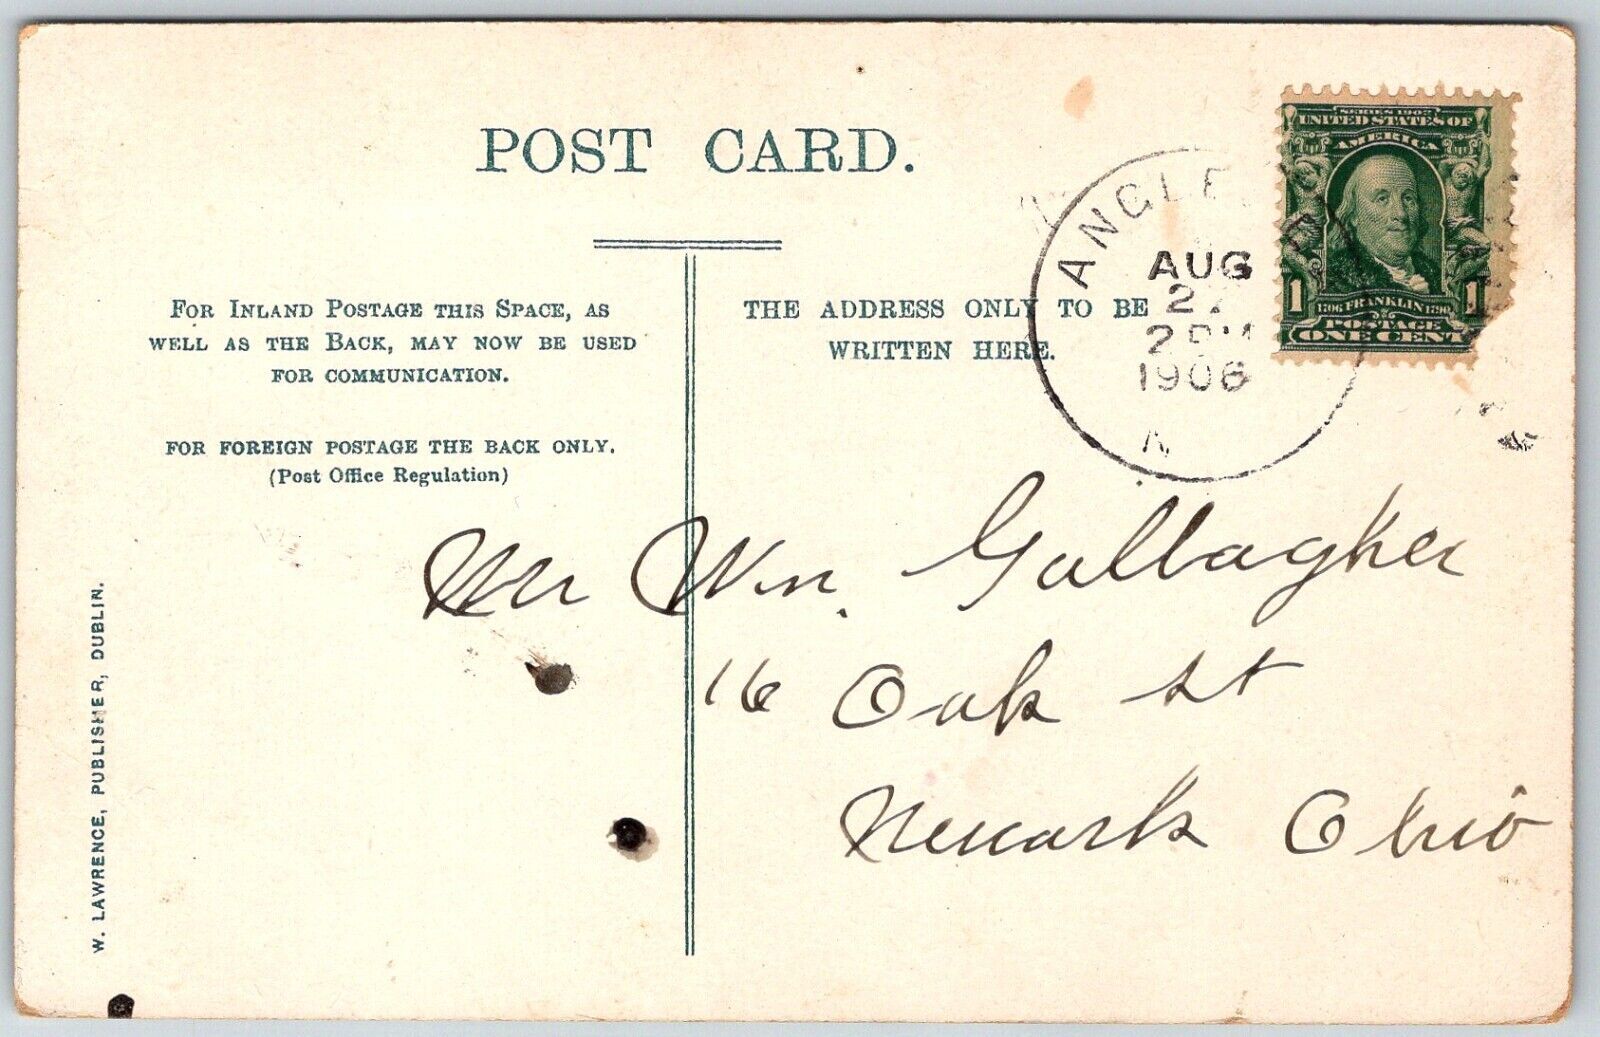 POST CARD.
FOR INLAND POSTAGE THIS SPACE, AS
WELL AS THE BACK, MAY NOW BE USED
FOR COMMUNICATION.
FOR FOREIGN POSTAGE THE BACK ONLY.
(Post Office Regulation)
THE ADDRESS ONLY TO BE
WRITTEN HERE.
AUG
27
2 PM
1906
SERIES 1902
UNITED STATES OF
AMERICA
1 1706 FRANKLIN 1790 1
POSTAGE
ONE CENT
Mr Wm. Gallagher
16 Oak st
Newark Ohio
W. LAWRENCE, PUBLISHER, DUBLIN.